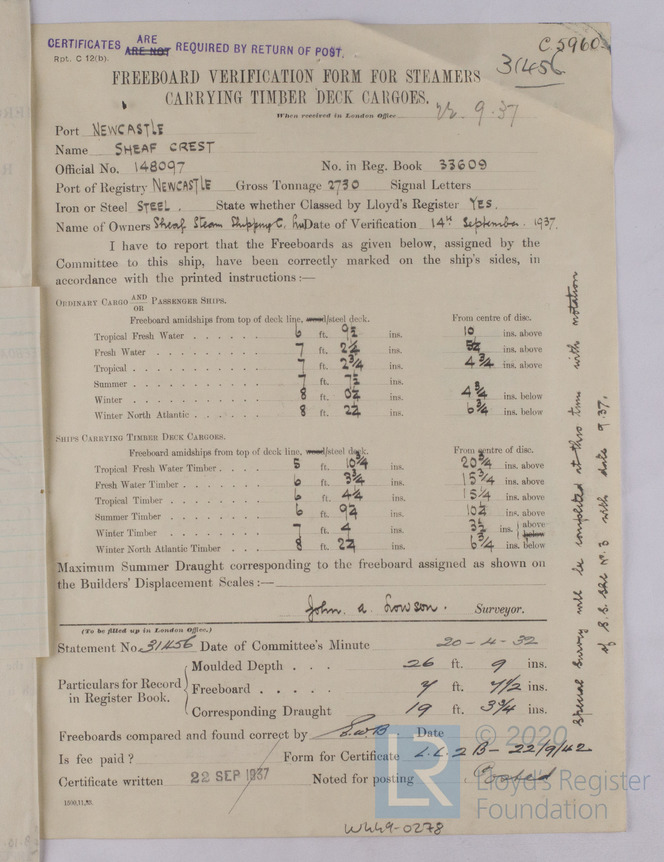 CERTIFICATES ARE ARE NOT REQUIRED BY RETURN OF POST.
C.5960
Rpt. C 12(b).
31456
FREEBOARD VERIFICATION FORM FOR STEAMERS
CARRYING TIMBER DECK CARGOES.
When received in London Office 22.9.37
Port NEWCASTLE
Name SHEAF CREST
Official No. 148097 No. in Reg. Book 33609
Port of Registry NEWCASTLE Gross Tonnage 2730 Signal Letters
Iron or Steel STEEL. State whether Classed by Lloyd's Register YES.
Name of Owners Sheaf Steam Shipping C. Ltd Date of Verification 14th September. 1937.
I have to report that the Freeboards as given below, assigned by the
Committee to this ship, have been correctly marked on the ship's sides, in
accordance with the printed instructions:—
ORDINARY CARGO AND OR PASSENGER SHIPS.
Freeboard amidships from top of deck line, wood/steel deck. From centre of disc.
Tropical Fresh Water 6 ft. 9½ ins. 10 ins. above
Fresh Water 7 ft. 2¼ ins. ins. above
Tropical 7 ft. 2¾ ins. 4¾ ins. above
Summer 7 ft. 7½ ins.
Winter 8 ft. ins. 4¾ ins. below
Winter North Atlantic 8 ft. 2¼ ins. 6¾ ins. below
SHIPS CARRYING TIMBER DECK CARGOES.
Freeboard amidships from top of deck line, wood/steel deck. From centre of disc.
Tropical Fresh Water Timber 5 ft. 10¾ ins. 20¾ ins. above
Fresh Water Timber 6 ft. 3¾ ins. 15¾ ins. above
Tropical Timber 6 ft. 4¼ ins. 15¼ ins. above
Summer Timber 6 ft. 9¼ ins. 10¼ ins. above
Winter Timber 7 ft. 4 ins. 3½ ins. above below
Winter North Atlantic Timber 8 ft. 2¼ ins. 6¾ ins. below
Maximum Summer Draught corresponding to the freeboard assigned as shown on
the Builders' Displacement Scales:—
John. A. Lowson. Surveyor.
(To be filled up in London Office.)
Statement No. 31456 Date of Committee's Minute 20-4-32
Particulars for Record in Register Book.
Moulded Depth 26 ft. 9 ins.
Freeboard 7 ft. 7½ ins.
Corresponding Draught 19 ft. 3¾ ins.
Freeboards compared and found correct by E.W.B. Date
Is fee paid? Form for Certificate L.L.2B-22/9/42
Certificate written 22 SEP 1937 Noted for posting Posted
1500,11,35.
W449-0278
Special Survey will be completed at this time with notation
of S.S. She No. 3 with date 9.37.
LR
© 2020
Lloyd's Register
Foundation